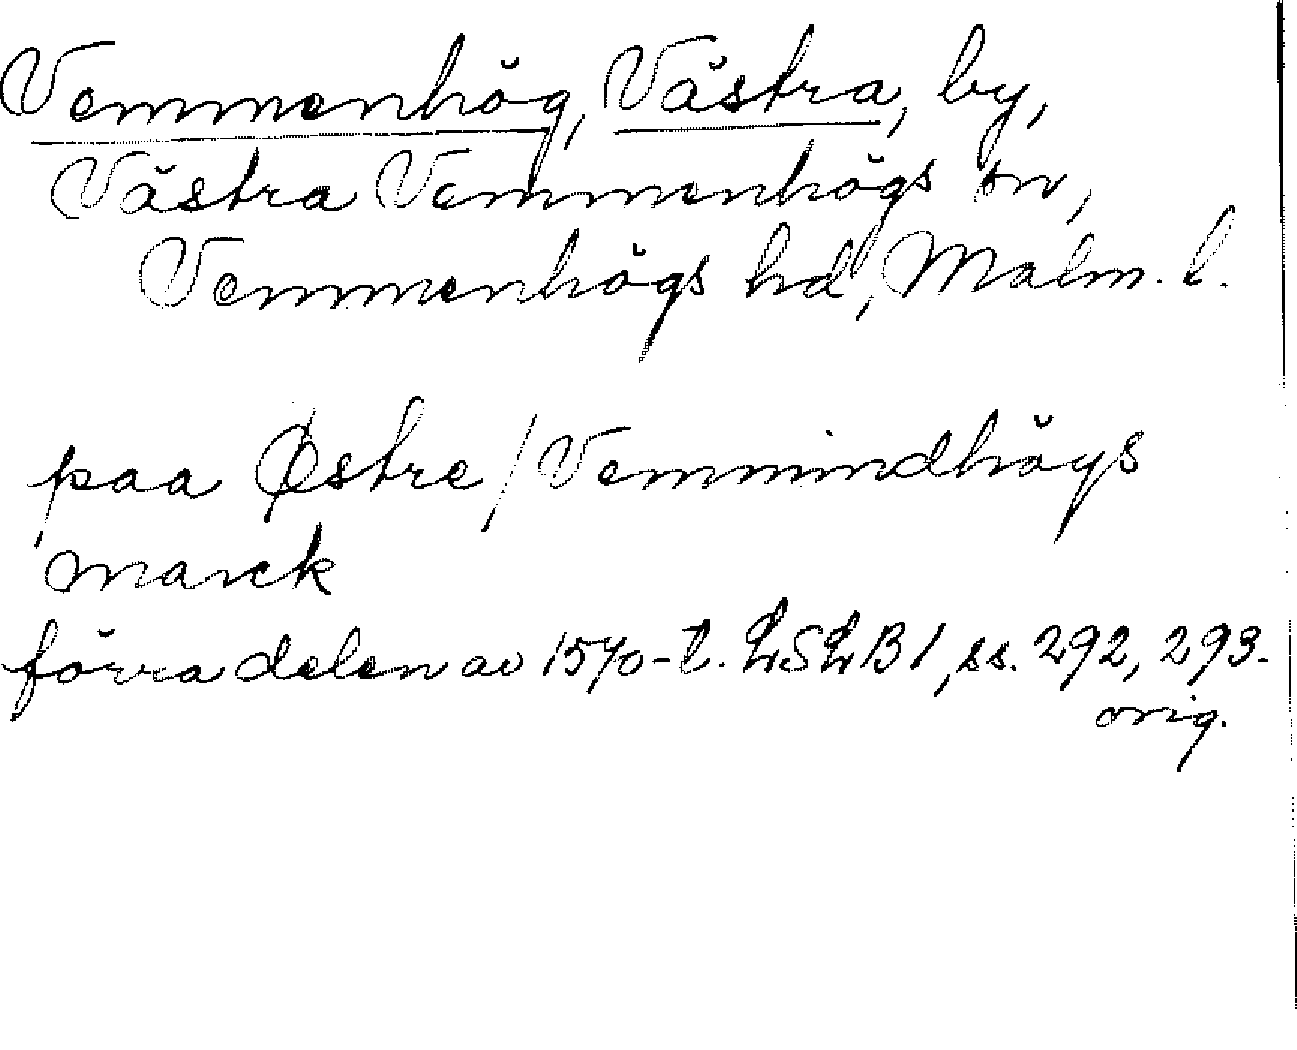 Vemmenhög, Västra, by,
Västra Vemmenhögs sn,
Vemmenhögs hd, Malm. l.
paa Østre / Vemmindhögs
marck
förra delen av 1570-t. LSLB1, ss. 292, 293.
orig.